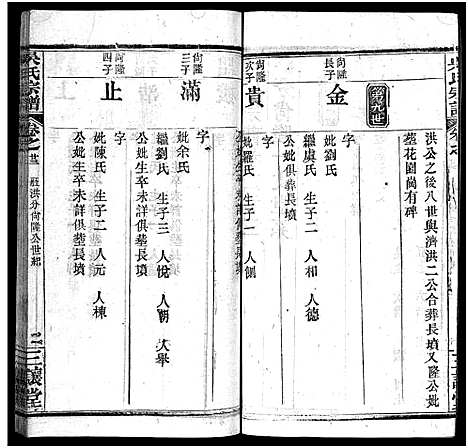 洪公之後八世與濟洪二公合葬長墳又隆公妣
葬花園尚有碑
第九世
尚隆
長子
金
字
妣劉氏
繼虞氏 生子二 人相 人德
公妣俱葬長墳
尚隆
次子
貴
妣羅氏 生子一 人側
尚隆
三子
滿
字
妣余氏
繼劉氏 生子三 人悅 人朝 人舉
公妣生卒未詳俱葬長墳
尚隆
四子
止
字
妣陳氏 生子二 人元 人棟
公妣生卒未詳俱葬長墳
吳氏宗譜
卷之
莊洪分尚隆公世系
三讓堂